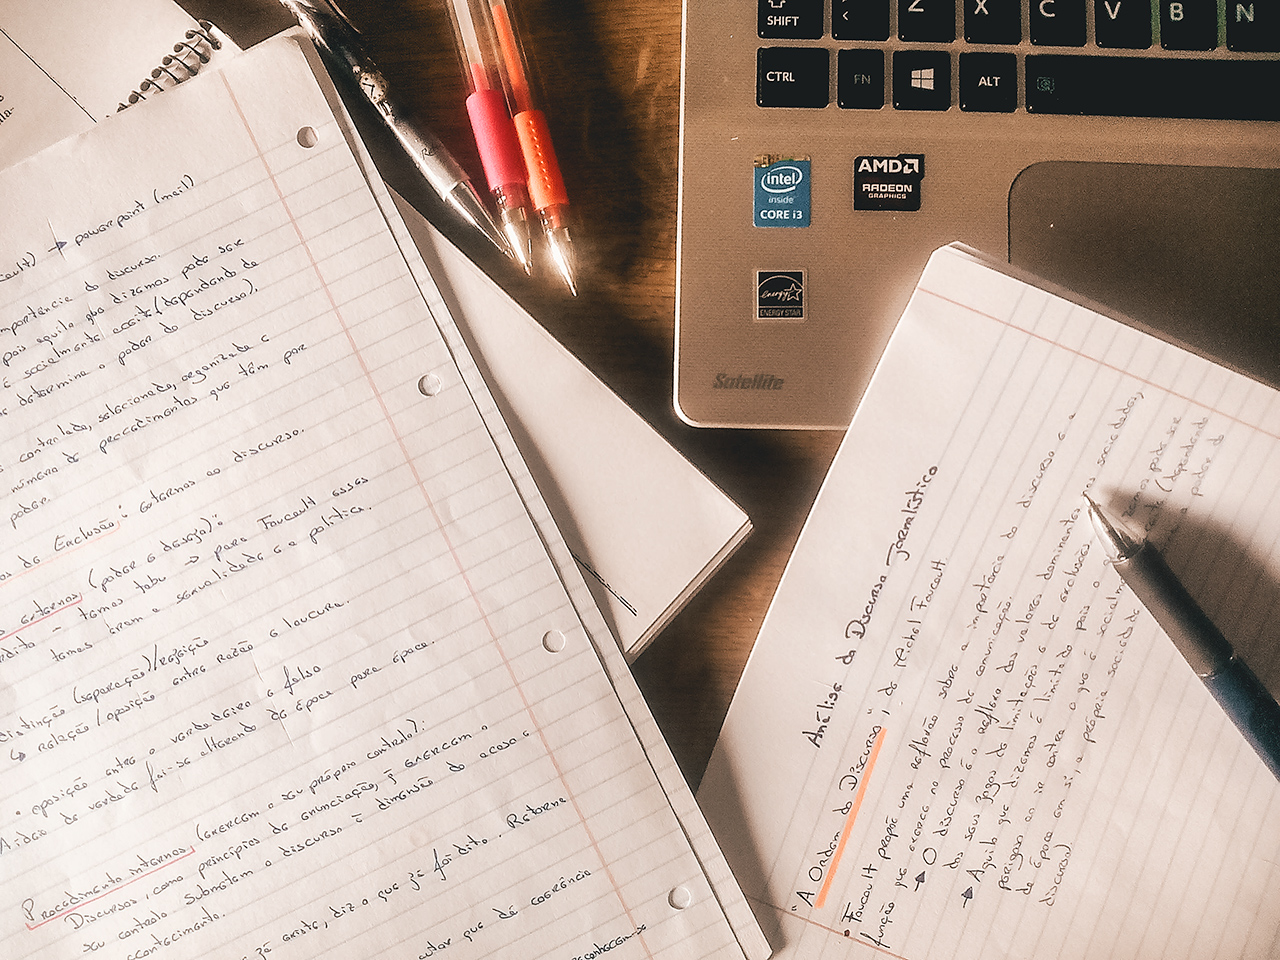 cault) → powerpoint (mail)
importância do discurso.
pois aquilo que dizemos pode ser
e socialmente aceite (dependendo de
determina o poder do discurso).
controlada, selecionada, organizada e
número de procedimentos que têm por
poder.
os de Exclusão: externos ao discurso.
externos (poder e desejo):
- temas tabu → para Foucault esses
temas eram a sexualidade e a política.
distinção (separação)/rejeição
↳ relação/oposição entre razão e loucura.
• oposição entre o verdadeiro e falso
A ideia de verdade foi-se alterando de época para época.
Procedimento internos (exercem o seu próprio controlo):
Discursos, como princípios de enunciação, já exercem o
seu controlo. Submetem o discurso à dimensão do acaso e
acontecimento.
já existe, diz o que já foi dito. Retorna
autor que dá coerência
SHIFT
<
Z
X
C
V
B
N
CTRL
FN
ALT
intel
inside
CORE i3
AMD
RADEON
GRAPHICS
energy
ENERGY STAR
Satellite
Análise do Discurso Jornalístico
"A Ordem do Discurso", de Michel Foucault
• Foucault propõe uma reflexão sobre a importância do discurso e a
função que exerce no processo de comunicação.
→ O discurso é o reflexo dos valores dominantes sociedades,
dos seus jogos de limitações e de exclusões
→ Aquilo que dizemos é limitado pois o pode ser
perigoso ou ir contra o que é socialmente (dependendo
da época em si, a própria sociedade o poder do
discurso)